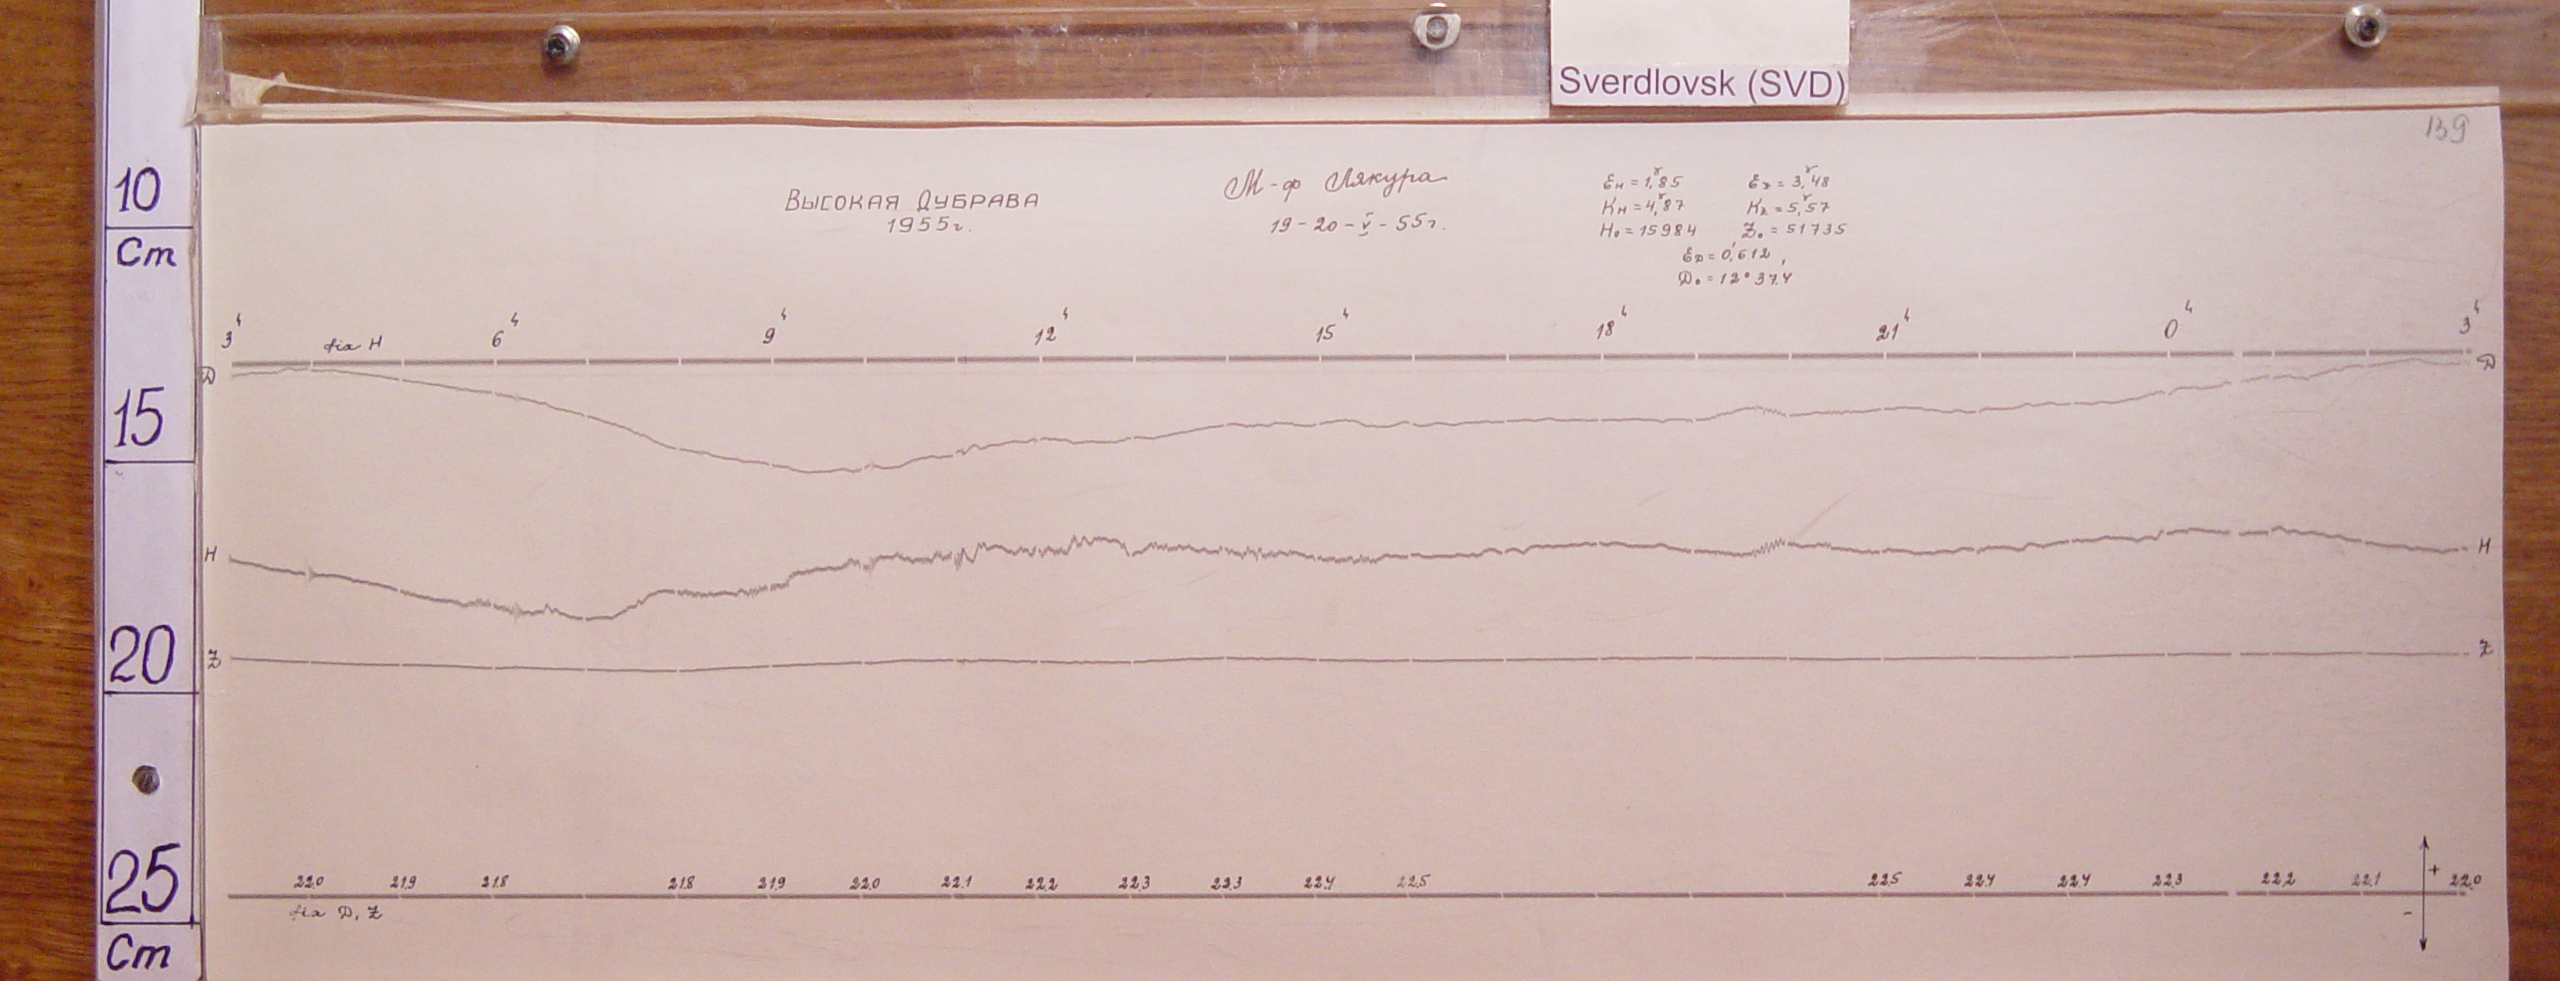 Sverdlovsk (SVD)
139
10
Cm
15
20
25
Cm
Высокая Дубрава
1955г.
М-ф Лякура
19-20-V-55г.
Eн = 1,γ85 Ez = 3,γ48
Kн = 4,γ87 Kz = 5,γ57
H₀ = 15984 Z₀ = 51735
ED = 0,'612
D₀ = 12°37,'4
3ч 6ч 9ч 12ч 15ч 18ч 21ч 0ч 3ч
fix H
D D
H H
Z Z
22.0 21.9 21.8 21.8 21.9 22.0 22.1 22.2 22.3 22.3 22.4 22.5 22.5 22.4 22.4 22.3 22.2 22.1 22.0
+
fix D, Z
-